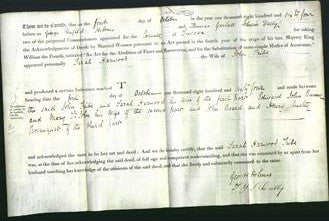 These are to certify, that on the first day of October in the year one thousand eight hundred and sixty four
before us George Holmes and Thomas
two of the perpetual Commissioners appointed for the County of Sussex for taking
the Acknowledgments of Deeds by Married Women pursuant to an Act passed in the fourth year of the reign of his late Majesty King
William the Fourth, intituled "An Act for the Abolition of Fines and Recoveries, and for the Substitution of more simple Modes of Assurance,"
appeared personally Sarah Harwood the Wife of John Tribe
and produced a certain Indenture marked and made between
bearing date the first day of October one thousand eight hundred and sixty four
the said John Tribe and Sarah Harwood his Wife of the first part Edward John
and Mary his Wife of the second part and John and Henry
of the third part
and acknowledged the same to be her act and deed: And we do hereby certify, that the said Sarah Harwood Tribe
was, at the time of her acknowledging the said deed, of full age and competent understanding, and that she was examined by us apart from her
husband touching her knowledge of the contents of the said deed, and that she freely and voluntarily consented to the same.
George Holmes